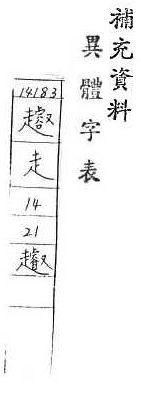 補充資料
異體字表
14183
走
14
21